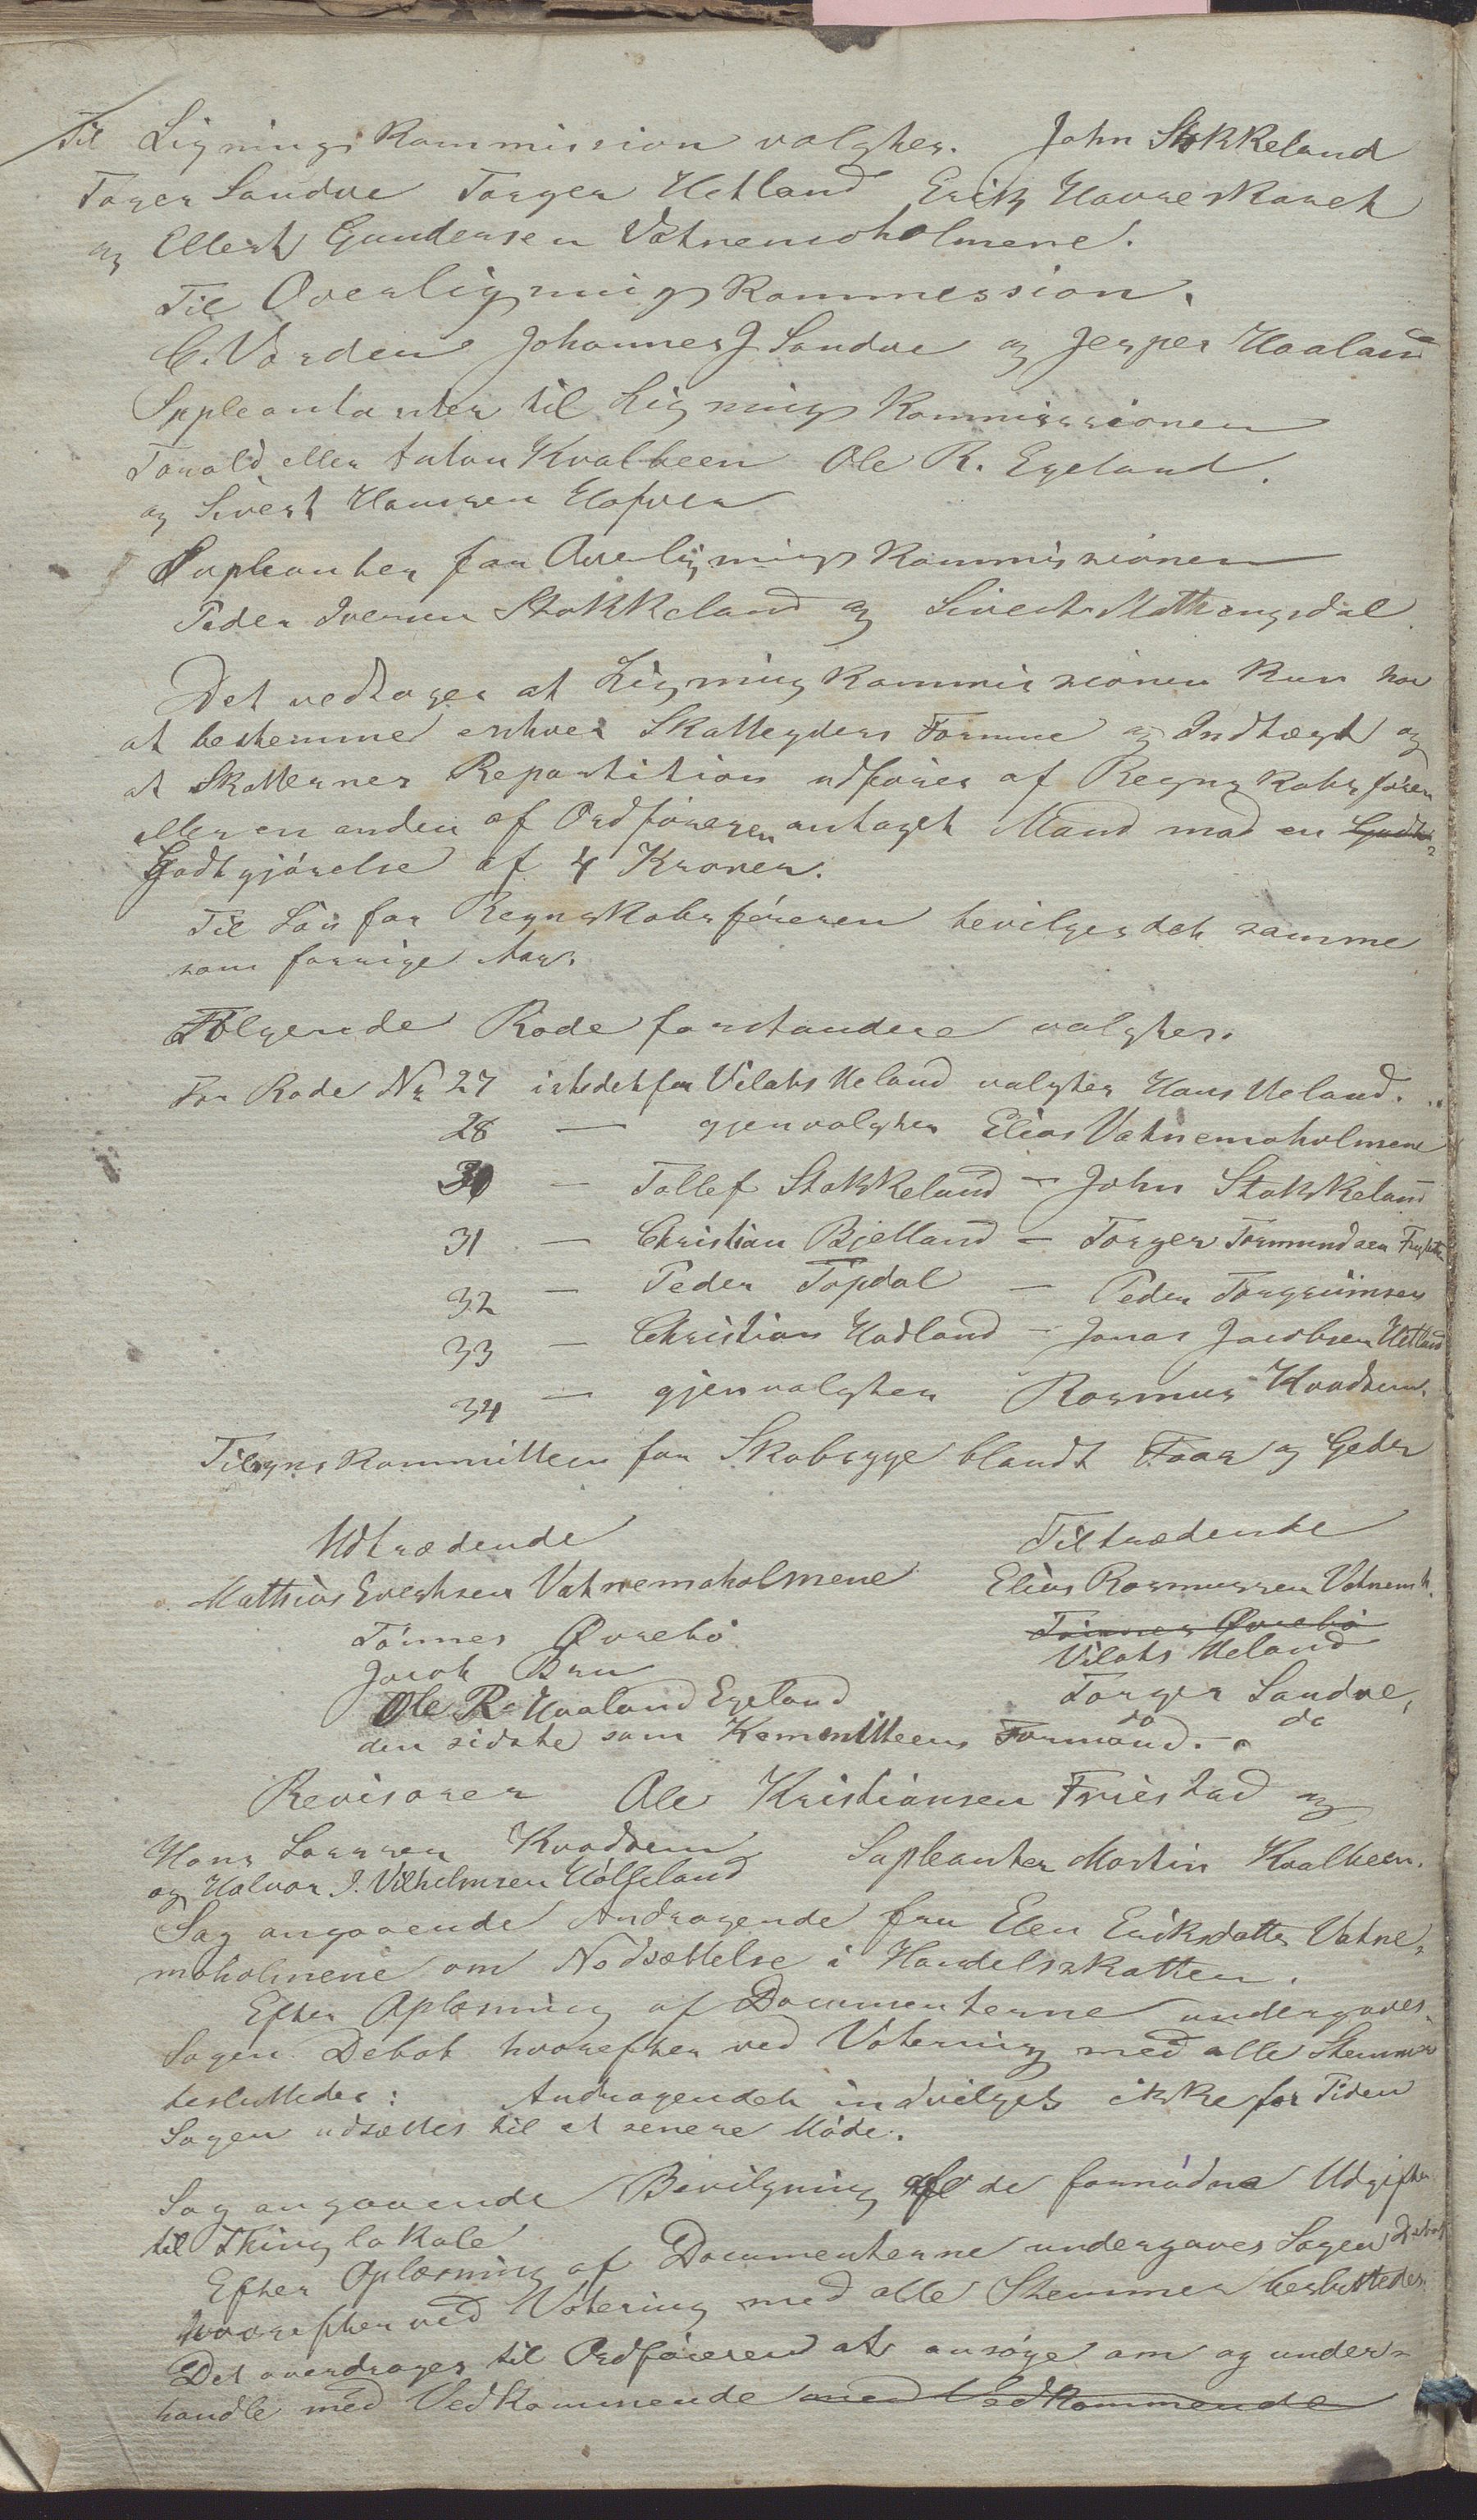 Til Lignings Kommission valgtes. John Stokkeland
Torger Sandve Torger Hetland Erik Havreskaret
og Ellert Gundersen Vatnemoholmene.
Til Overligningskommession.
C. Varden Johannes J Sandve og Jesper Haaland
Sppleantanter til Ligningskommissionen
Torald eller Anton Kvalbeen Ole R. Egeland.
og Sivert Hanssen Hofven
Supleanter for Overligningskommissionen
Peder Iversen Stokkeland og Sivert Motlangsdal.
Det vedtages at Ligningkommissionen kun har
at bestemme enhver Skatteyders Formue og Indtægt og
at Skatternes Repartition udføres af Regnskabsfører
eller en anden af Ordføreren antaget Mand mod en Godt-
Godtgjørelse af 4 Kroner.
Til Løn for Regnskabsføreren bevilges det samme
som forrige Aar.
Følgende Rodeforstandere valgtes.
For Rode Nr 27 istedetfor Vilats Ueland valgtes Hans Ueland.
28 — gjenvalgtes Elias Vatnemoholmene
30 — Tollef Stokkeland — John Stokkeland
31 — Christian Bjelland — Torger Tormundsen
32 — Peder Topdal — Peder Torgrimsen
33 — Christian Hadland — Jonas Jacobsen Hetland
34 — gjenvalgtes Rasmus Kvadsem.
Tilsynskommitteen for Skabsyge blandt Faar og Geder
Udtrædende Tiltrædende
Mathias Evertsen Vatnemoholmene Elias Rasmussen Vatnemh.
Tønnes Øvrebø Tønnes Øvrebø
Jacob Bru Vilats Ueland
Ole R. Haaland Egeland Torger Sandve,
den sidste som Kommitteens Formand. do do
Revisorer Ole Kristiansen Friestad og
Hans Larssen Kvadsem Supleanter Martin Kvalbeen.
og Halvor I. Vilhelmsen Hølleland
Sag angaaende Andragende fra Elen Eriksdatter Vatne-
moholmene om Nedsættelse i Handelsskatten.
Efter Oplæsning af Documenterne undergaves
Sagen Debat hvorefter ved Votering med alle Stemmer
besluttedes: Andragendet indvilges ikke for Tiden
Sagen udsættes til et senere Møde.
Sag angaaende Bevilgning af de fornødne Udgifter
til Thinglokale
Efter Oplæsning af Documenterne undergaves Sagen Debat
hvorefter ved Votering med alle Stemmer besluttedes
Det overdrages til Ordføreren at ansøge om og under-
handle med Vedkommende med Vedkommende